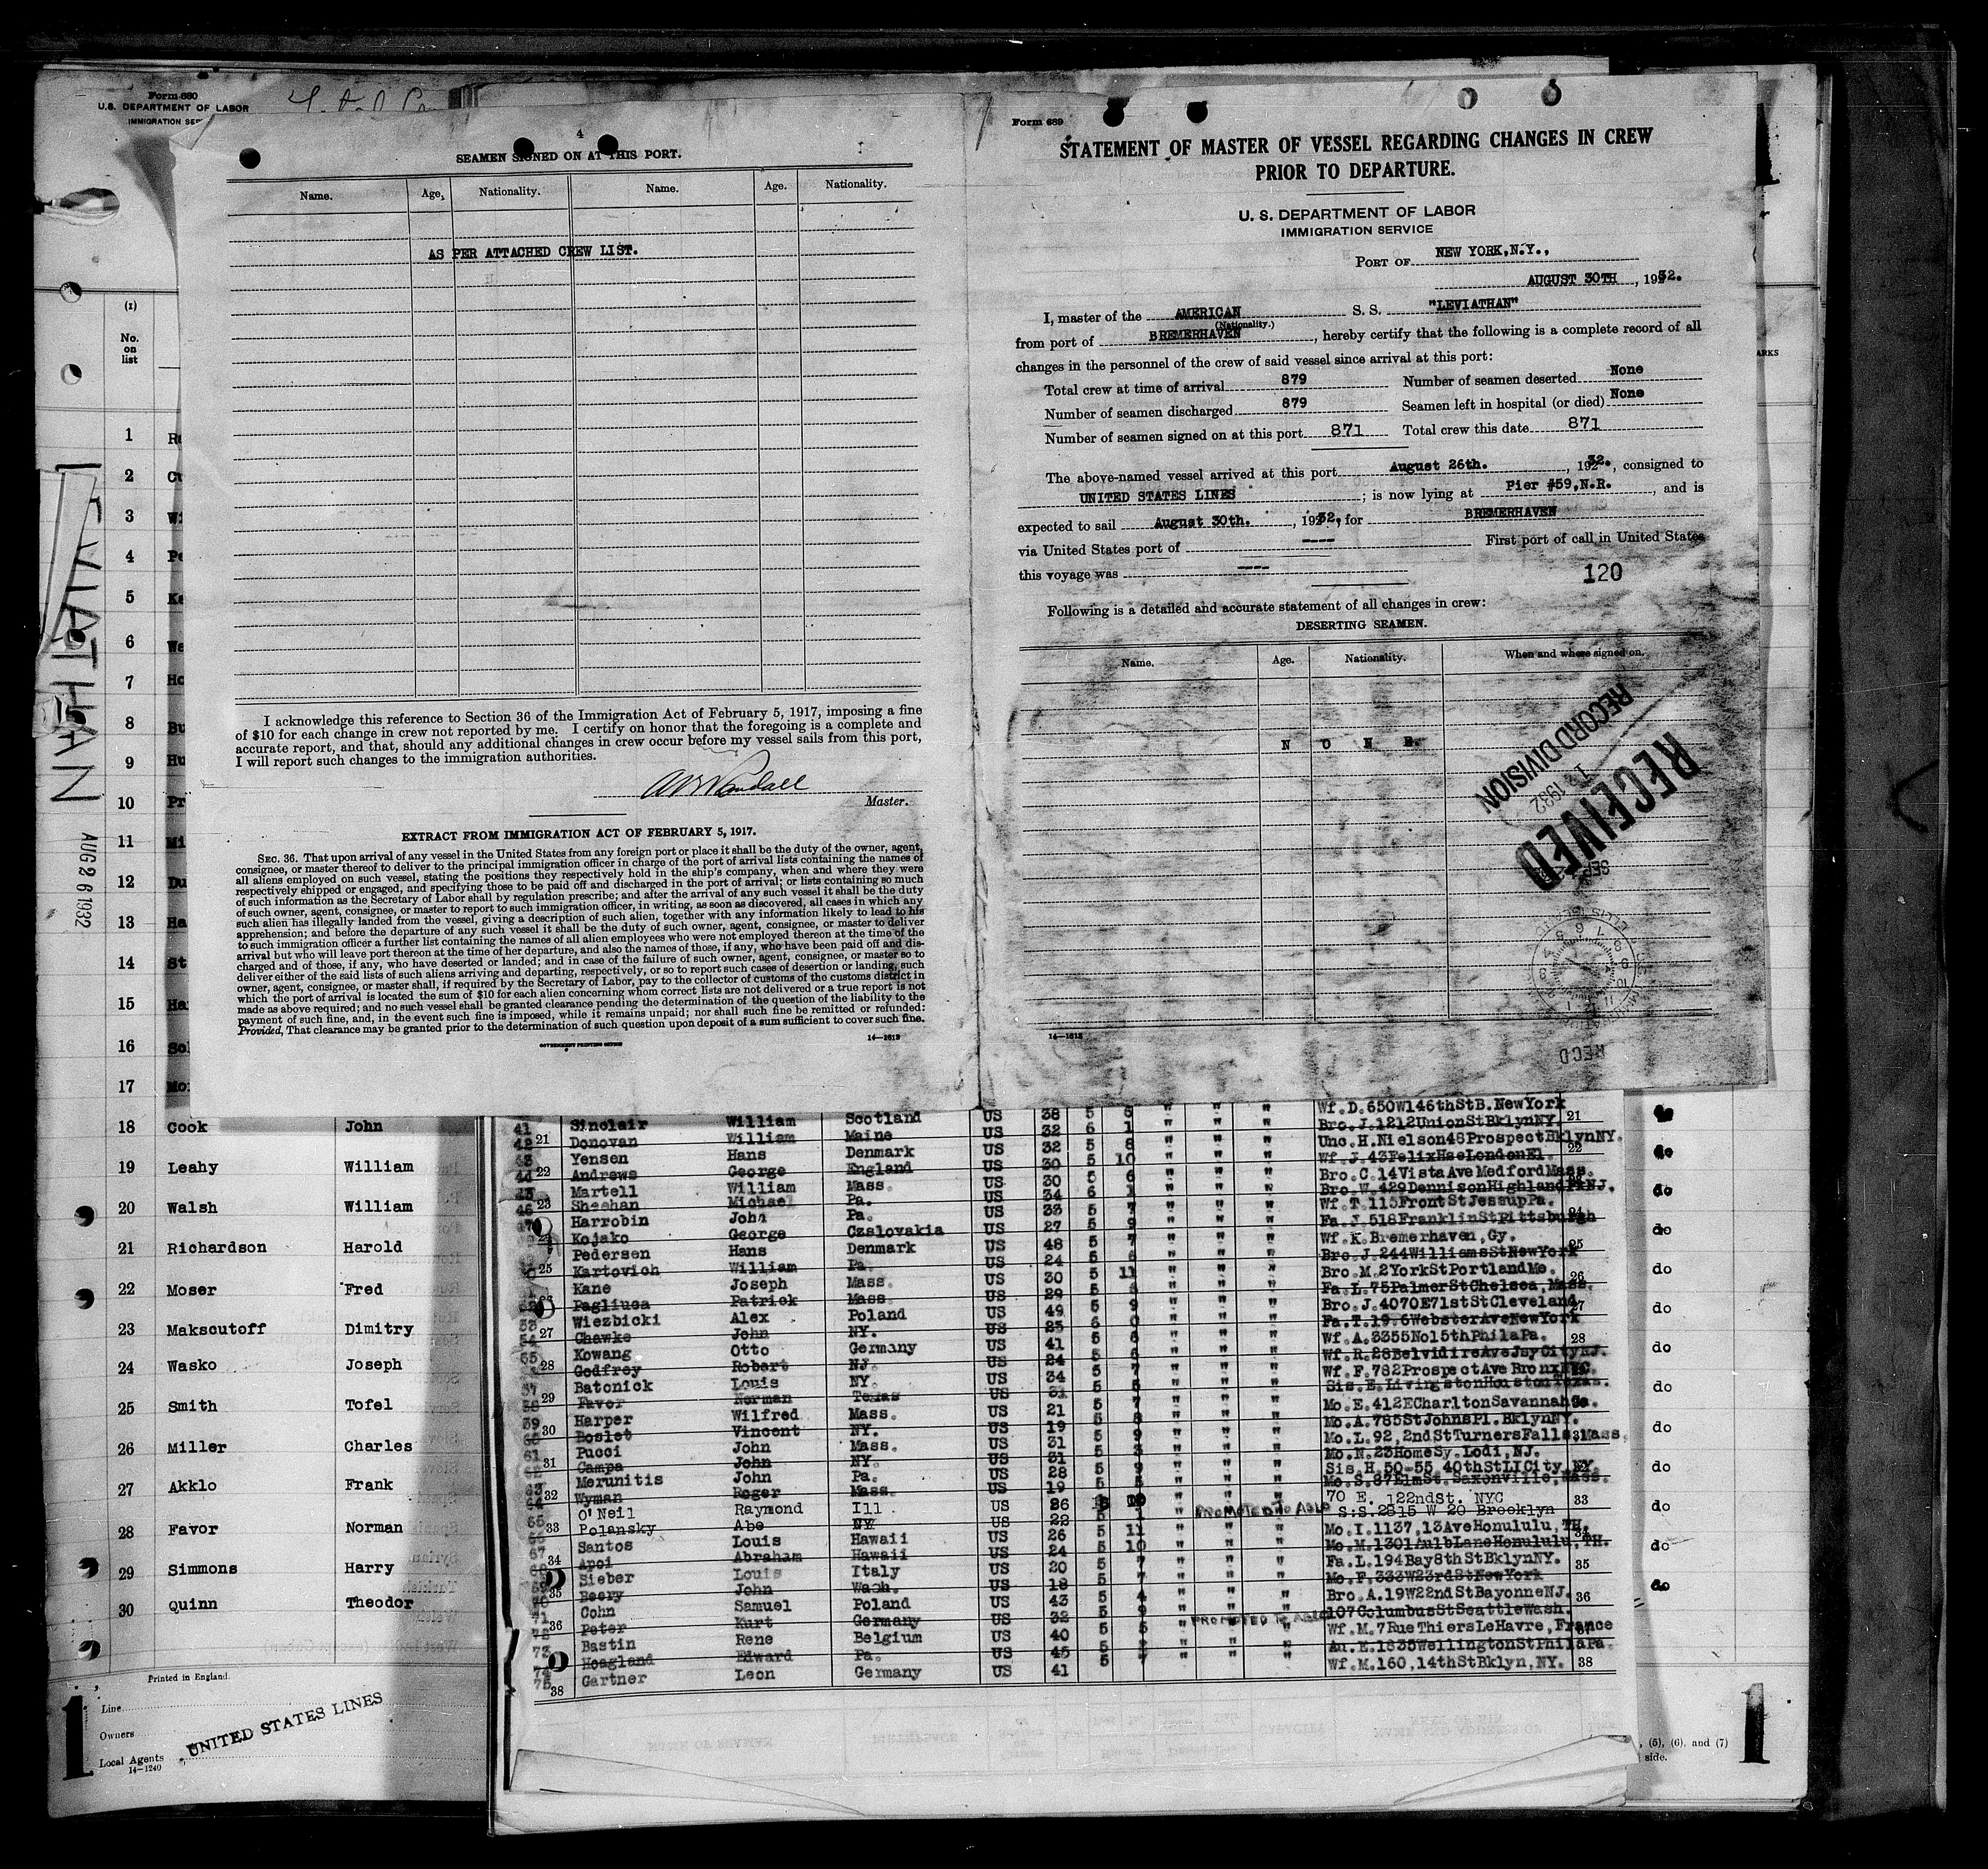 Form 680
U.S. DEPARTMENT OF LABOR
IMMIGRATION SER
4
SEAMEN SIGNED ON AT THIS PORT.
Name. Age. Nationality. Name. Age. Nationality.
AS PER ATTACHED CREW LIST.
I acknowledge this reference to Section 36 of the Immigration Act of February 5, 1917, imposing a fine
of $10 for each change in crew not reported by me. I certify on honor that the foregoing is a complete and
accurate report, and that, should any additional changes in crew occur before my vessel sails from this port,
I will report such changes to the immigration authorities.
Master.
EXTRACT FROM IMMIGRATION ACT OF FEBRUARY 5, 1917.
SEC. 36. That upon arrival of any vessel in the United States from any foreign port or place it shall be the duty of the owner, agent,
consignee, or master thereof to deliver to the principal immigration officer in charge of the port of arrival lists containing the names of
all aliens employed on such vessel, stating the positions they respectively hold in the ship's company, when and where they were
respectively shipped or engaged, and specifying those to be paid off and discharged in the port of arrival; or lists containing so much
of such information as the Secretary of Labor shall by regulation prescribe; and after the arrival of any such vessel it shall be the duty
of such owner, agent, consignee, or master to report to such immigration officer, in writing, as soon as discovered, all cases in which any
such alien has illegally landed from the vessel, giving a description of such alien, together with any information likely to lead to his
apprehension; and before the departure of any such vessel it shall be the duty of such owner, agent, consignee, or master to deliver
to such immigration officer a further list containing the names of all alien employees who were not employed thereon at the time of the
arrival but who will leave port thereon at the time of her departure, and also the names of those, if any, who have been paid off and dis-
charged and of those, if any, who have deserted or landed; and in case of the failure of such owner, agent, consignee, or master so to
deliver either of the said lists of such aliens arriving and departing, respectively, or so to report such cases of desertion or landing, such
owner, agent, consignee, or master shall, if required by the Secretary of Labor, pay to the collector of customs of the customs district in
which the port of arrival is located the sum of $10 for each alien concerning whom correct lists are not delivered or a true report is not
made as above required; and no such vessel shall be granted clearance pending the determination of the question of the liability to the
payment of such fine, and, in the event such fine is imposed, while it remains unpaid; nor shall such fine be remitted or refunded:
Provided, That clearance may be granted prior to the determination of such question upon deposit of a sum sufficient to cover such fine.
GOVERNMENT PRINTING OFFICE
14—1613
Form 689
STATEMENT OF MASTER OF VESSEL REGARDING CHANGES IN CREW
PRIOR TO DEPARTURE.
U. S. DEPARTMENT OF LABOR
IMMIGRATION SERVICE
PORT OF NEW YORK,N.Y.,
AUGUST 30TH , 1932.
I, master of the AMERICAN S. S. "LEVIATHAN"
(Nationality.)
from port of BREMERHAVEN , hereby certify that the following is a complete record of all
changes in the personnel of the crew of said vessel since arrival at this port:
Total crew at time of arrival 879 Number of seamen deserted None
Number of seamen discharged 879 Seamen left in hospital (or died) None
Number of seamen signed on at this port 871 Total crew this date 871
The above-named vessel arrived at this port August 26th. , 1932. , consigned to
UNITED STATES LINES ; is now lying at Pier #59,N.R. , and is
expected to sail August 30th. , 1932, for BREMERHAVEN
via United States port of ---- First port of call in United States
this voyage was ----
120
Following is a detailed and accurate statement of all changes in crew:
DESERTING SEAMEN.
Name. Age. Nationality. When and where signed on.
N O N E.
RECEIVED
SEP 12 1932
RECORD DIVISION
REC'D
14—1613
LEVIATHAN
AUG 26 1932
(1)
No.
on
list
ARKS
1
2
3
4
5
6
7
8
9
10
11
12
13
14
15
16
17
18 Cook John
19 Leahy William
20 Walsh William do
21 Richardson Harold do
22 Moser Fred do
23 Makscutoff Dimitry do
24 Wasko Joseph do
25 Smith Tofel do
26 Miller Charles do
27 Akklo Frank do
28 Favor Norman do
29 Simmons Harry do
30 Quinn Theodor do
41 Sinclair William Scotland US 38 5 5 " " " Wf.D.650W146thStB.NewYork 21
42 21 Donovan William Maine US 32 6 1 " " " Bro.J.1212UnionStBklynNY.
43 Yensen Hans Denmark US 32 5 8 " " " Unc.H.Nielson48ProspectBklynNY. 22
44 22 Andrews George England US 30 5 10 " " " Wf.J.43FelixHseLondonEl.
45 Martell William Mass. US 30 5 6 " " " Bro.C.14VistaAveMedfordMass.
46 23 Sheehan Michael Pa. US 34 6 1 " " " Bro.W.429DennisonHighlandPkNJ.
47 Harrobin John Pa. US 33 5 7 " " " Wf.T.115FrontStJessupPa. 24
Kojako George Czslovakia US 27 5 9 " " " Fa.J.518FranklinStPittsburgh
Pedersen Hans Denmark US 48 5 7 " " " Wf.K.Bremerhaven,Gy. 25
25 Kartovich William Pa. US 24 5 6 " " " Bro.J.244WilliamsStNewYork
Kane Joseph Mass. US 30 5 11 " " " Bro.M.2YorkStPortlandMe. 26
Pagliuca Patrick Mass. US 29 5 " " " Fa.L.75PalmerStChelsea,Mass.
53 Wiezbicki Alex Poland US 49 5 9 " " " Bro.J.4070E71stStCleveland 27
54 27 Chawke John NY. US 25 6 0 " " " Fa.T.19.6WebsterAveNewYork
55 Kowang Otto Germany US 41 5 6 " " " Wf.A.3355No15thPhilaPa. 28
28 Godfrey Robert NJ. US 24 5 6 " " " Wf.R.28BelvidireAveJsyCityNJ.
57 Batonick Louis NY. US 34 5 7 " " " Wf.F.782ProspectAveBronxNYC.
58 29 Favor Norman Texas US 31 5 5 " " " Sis.E.LivingstonHoustonTexas.
59 Harper Wilfred Mass. US 21 5 7 " " " Mo.E.412ECharltonSavannahGa.
60 30 Boslet Vincent NY. US 19 5 8 " " " Mo.A.785StJohnsPl.BklynNY.
61 Pucci John Mass. US 31 5 9 " " " Mo.L.92,2ndStTurnersFalls,Mass. 31
62 31 Campa John NY. US 31 5 3 " " " Mo.N.23HomeSy.Lodi,NJ.
63 Merunitis John Pa. US 28 5 9 " " " Sis.H.50-55 40thStLICity,NY.
64 32 Wyman Roger Mass. US 19 5 5 " " " Mo.S.87ElmSt.Saxonville,Mass.
65 O'Neil Raymond Ill. US 26 5 10 " " " 70 E. 122ndSt. NYC 33
33 Polansky Abe NY US 22 5 1 PROMOTED TO S:S.2815 W 20 Brooklyn
67 Santos Louis Hawaii US 26 5 11 " " " Mo.I.1137,13AveHonululu,TH. 34
34 Apoi Abraham Hawaii US 24 5 10 " " " Mo.M.1301AulbLaneHonululu,TH.
Sieber Louis Italy US 20 5 7 " " " Fa.L.194Bay8thStBklynNY. 35
70 35 Beery John Wash. US 18 5 7 " " " Mo.F.333W23rdStNewYork
71 Cohn Samuel Poland US 43 5 4 " " " Bro.A.19W22ndStBayonneNJ. 36
72 36 Peter Kurt Germany US 32 5 9 PROMOTED TO 107ColumbusStSeattleWash.
73 Bastin Rene Belgium US 40 5 5 " " " Wf.M.7RueThiersLeHavre,France
74 Hoagland Edward Pa. US 45 5 2 " " " Au.E.1835WellingtonStPhilaPa.
75 38 Gartner Leon Germany US 41 5 7 " " " Wf.M.160,14thStBklyn,NY. 38
Printed in England.
Line
Owners
Local Agents
UNITED STATES LINES
14—1240
, (5), (6), and (7)
side.
1
1